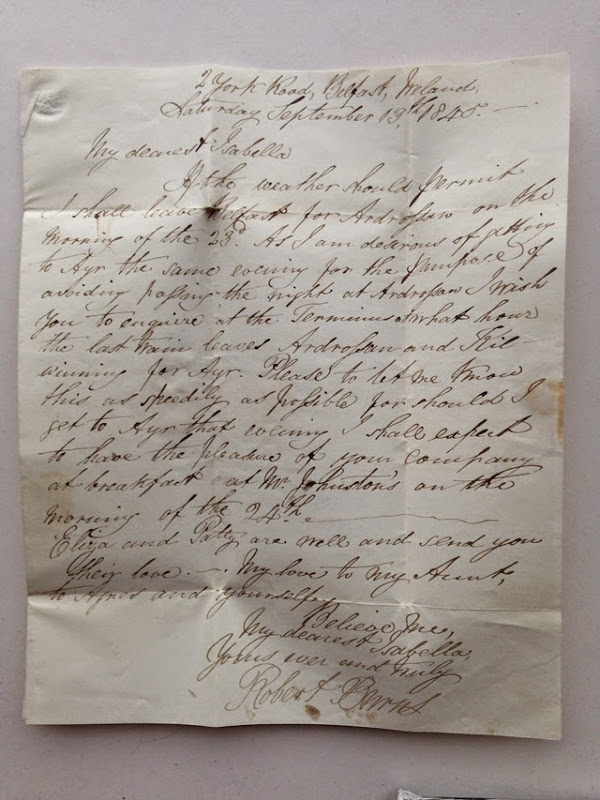 2 York Road, Belfast, Ireland,
Saturday September 13th 1845. —
My dearest Isabella
If the weather should permit
I shall leave Belfast for Ardrossan on the
morning of the 23d. As I am desirous of getting
to Ayr the same evening for the purpose of
avoiding passing the night at Ardrossan I wish
you to enquire at the Terminus at what hour
the last train leaves Ardrossan and Kil-
winning for Ayr. Please to let me know
this as speedily as possible for should I
get to Ayr that evening I shall expect
to have the pleasure of your company
at breakfast at Mr. Johnston's on the
morning of the 24th.
Eliza and Patty are well and send you
their love. —. My love to my Aunt,
to Agnes and yourself,
Believe me,
My dearest Isabella,
Yours ever and truly
Robert Burns